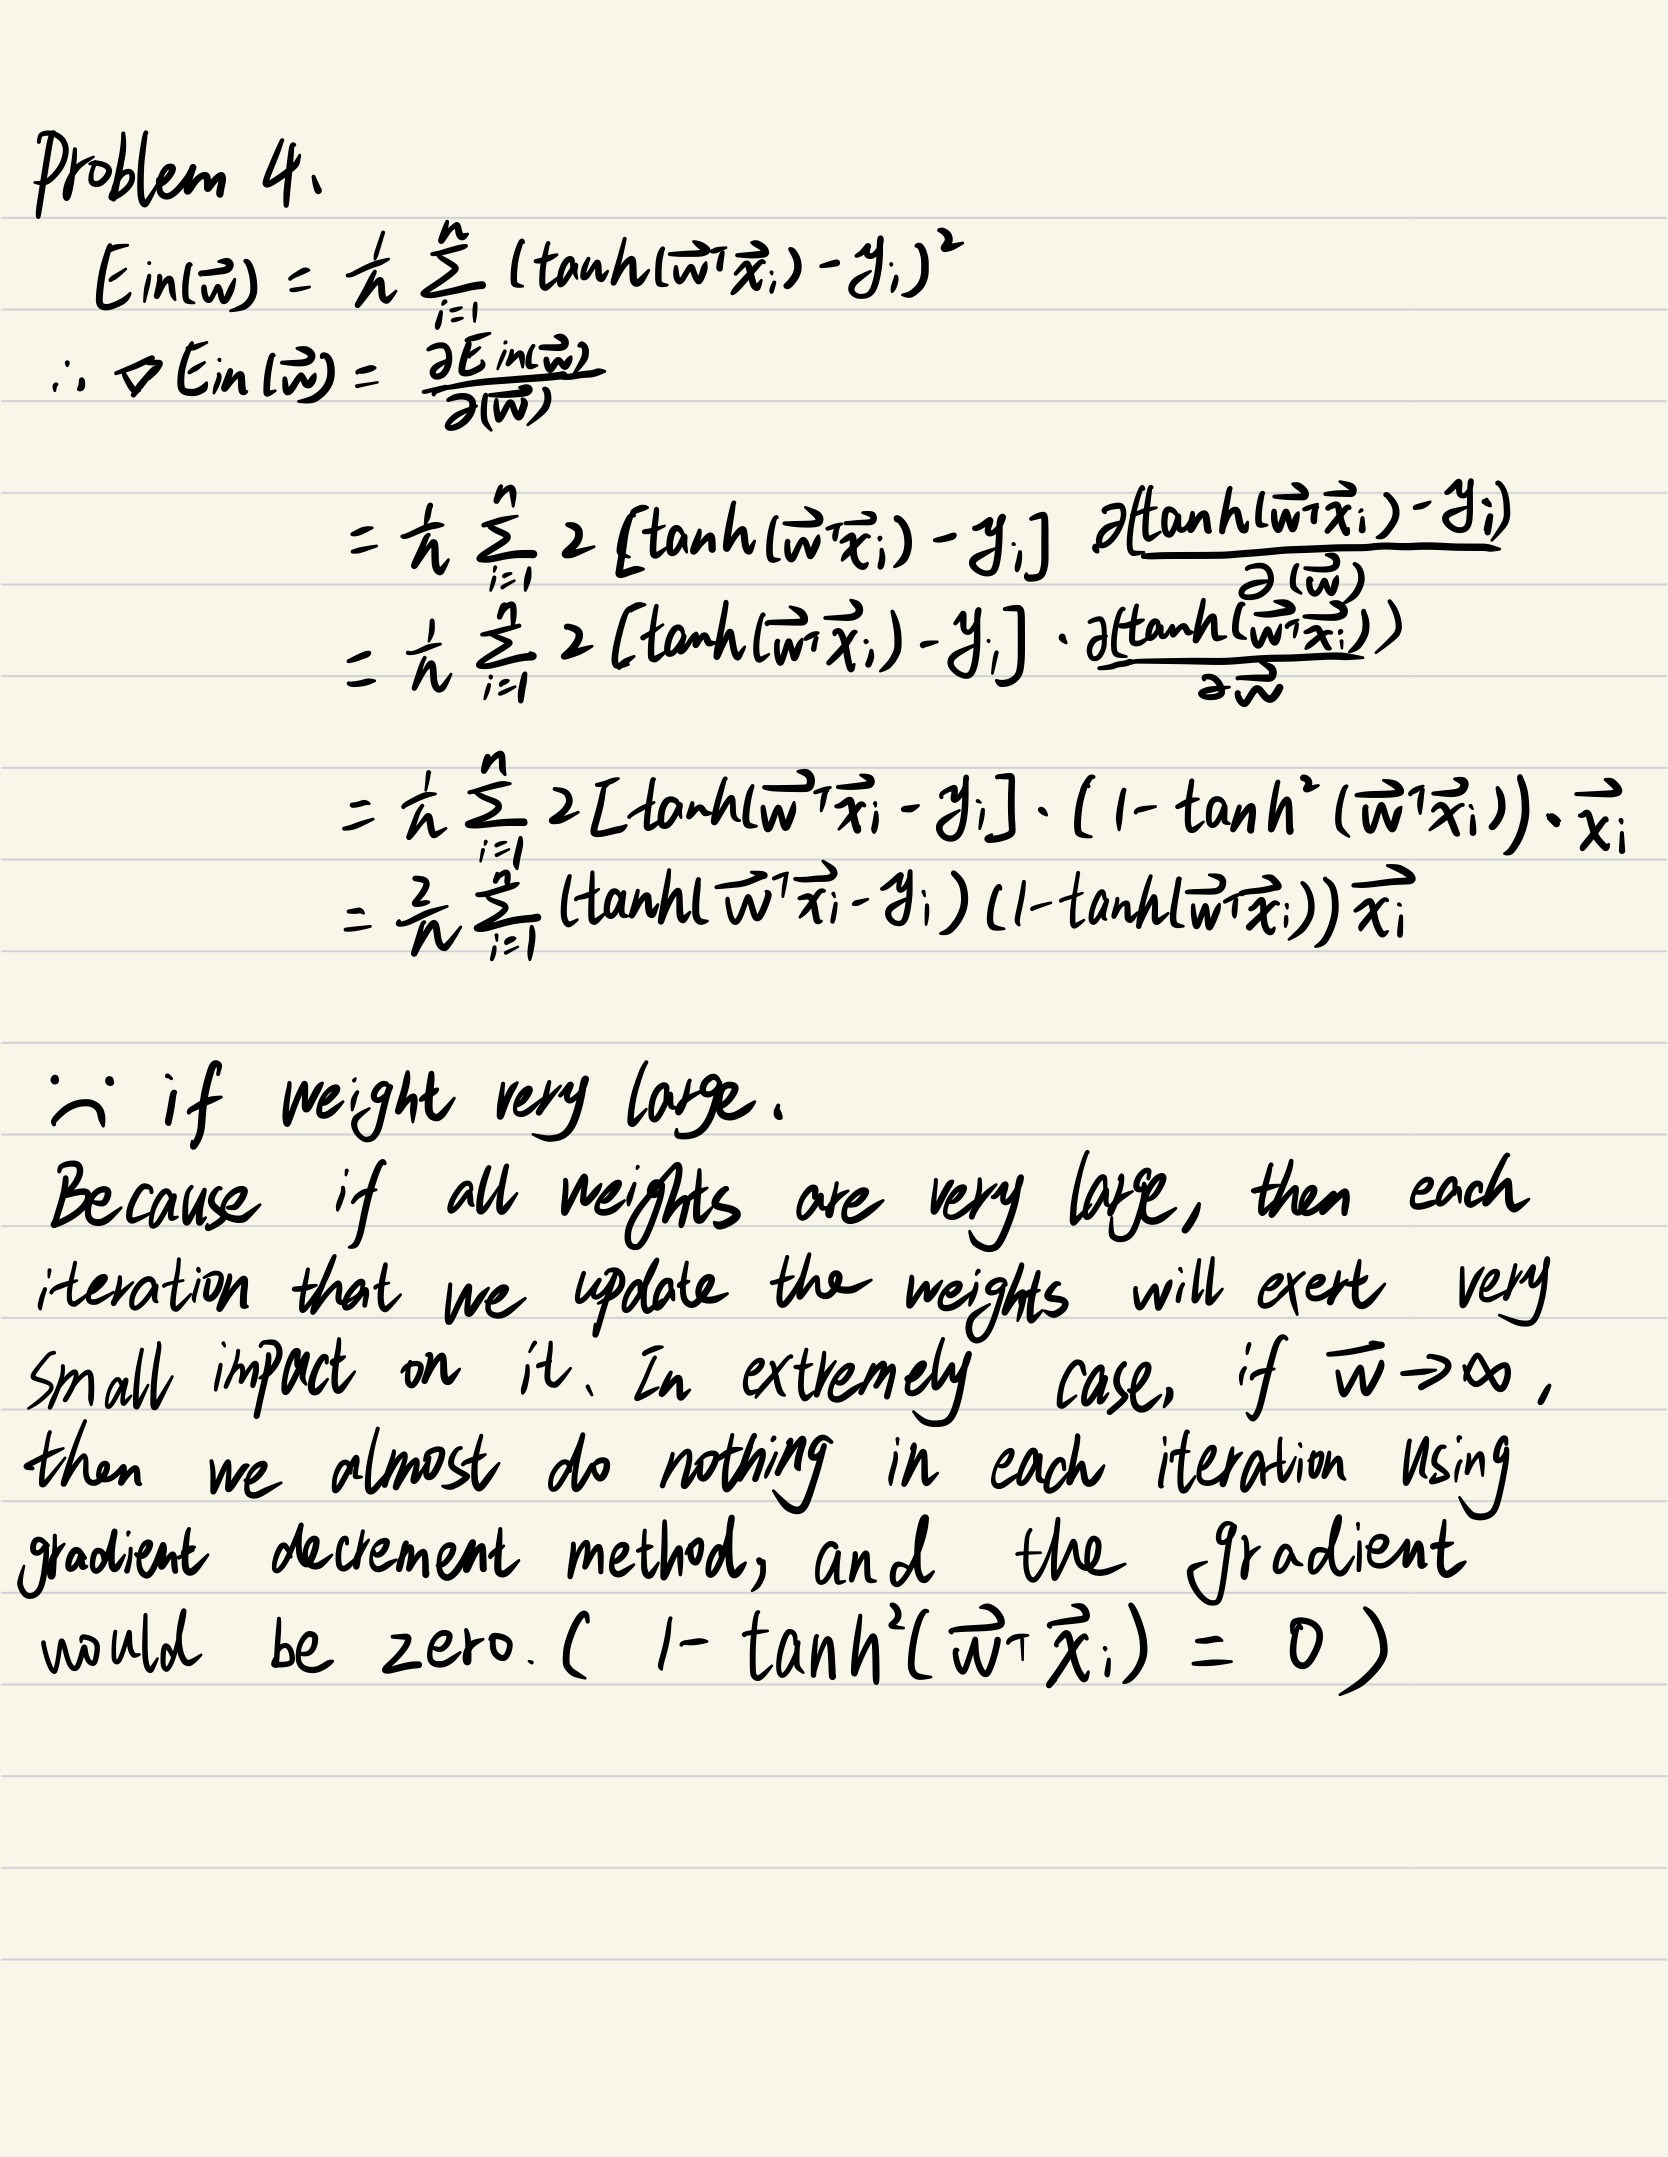 Problem 4.
Ein(w⃗) = 1/n Σ_{i=1}^{n} (tanh(w⃗ᵀx⃗ᵢ) - yᵢ)²
∴ ∇Ein(w⃗) = ∂Ein(w⃗)/∂(w⃗)
= 1/n Σ_{i=1}^{n} 2 [tanh(w⃗ᵀx⃗ᵢ) - yᵢ] ∂(tanh(w⃗ᵀx⃗ᵢ) - yᵢ)/∂(w⃗)
= 1/n Σ_{i=1}^{n} 2 [tanh(w⃗ᵀx⃗ᵢ) - yᵢ] · ∂(tanh(w⃗ᵀx⃗ᵢ))/∂w⃗
= 1/n Σ_{i=1}^{n} 2 [tanh(w⃗ᵀx⃗ᵢ - yᵢ] · (1 - tanh²(w⃗ᵀx⃗ᵢ)) · x⃗ᵢ
= 2/n Σ_{i=1}^{n} (tanh(w⃗ᵀx⃗ᵢ - yᵢ) (1 - tanh(w⃗ᵀx⃗ᵢ)) x⃗ᵢ
if weight very large.
Because if all weights are very large, then each
iteration that we update the weights will exert very
small impact on it. In extremely case, if w⃗ → ∞,
then we almost do nothing in each iteration using
gradient decrement method, and the gradient
would be zero. ( 1 - tanh²(w⃗ᵀx⃗ᵢ) = 0 )